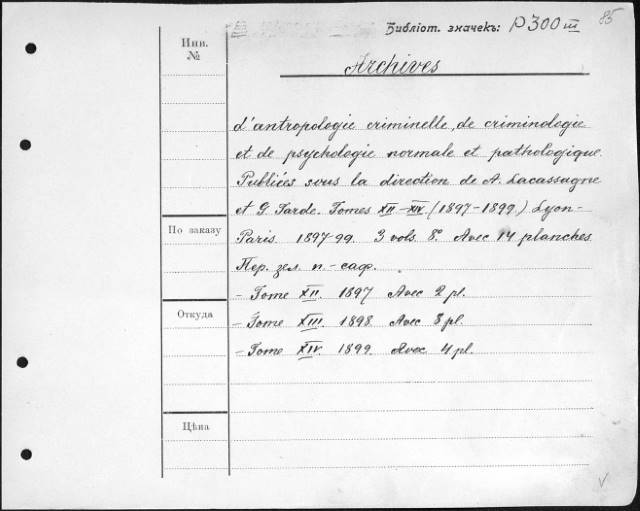 85
Библіот. значекъ: P300 III
Инв. №
Archives
d'antropologie criminelle, de criminologie
et de psychologie normale et pathologique.
Publiées sous la direction de A. Lacassagne
et G. Tarde. Tomes XII–XIV. (1897–1899.) Lyon-
По заказу
Paris. 1897-99. 3 vols. 8º. Avec 14 planches.
Пер. зел. п.-саф.
– Tome XII. 1897 Avec 2 pl.
Откуда
– Tome XIII. 1898. Avec 8 pl.
– Tome XIV. 1899. Avec 4 pl.
Цѣна